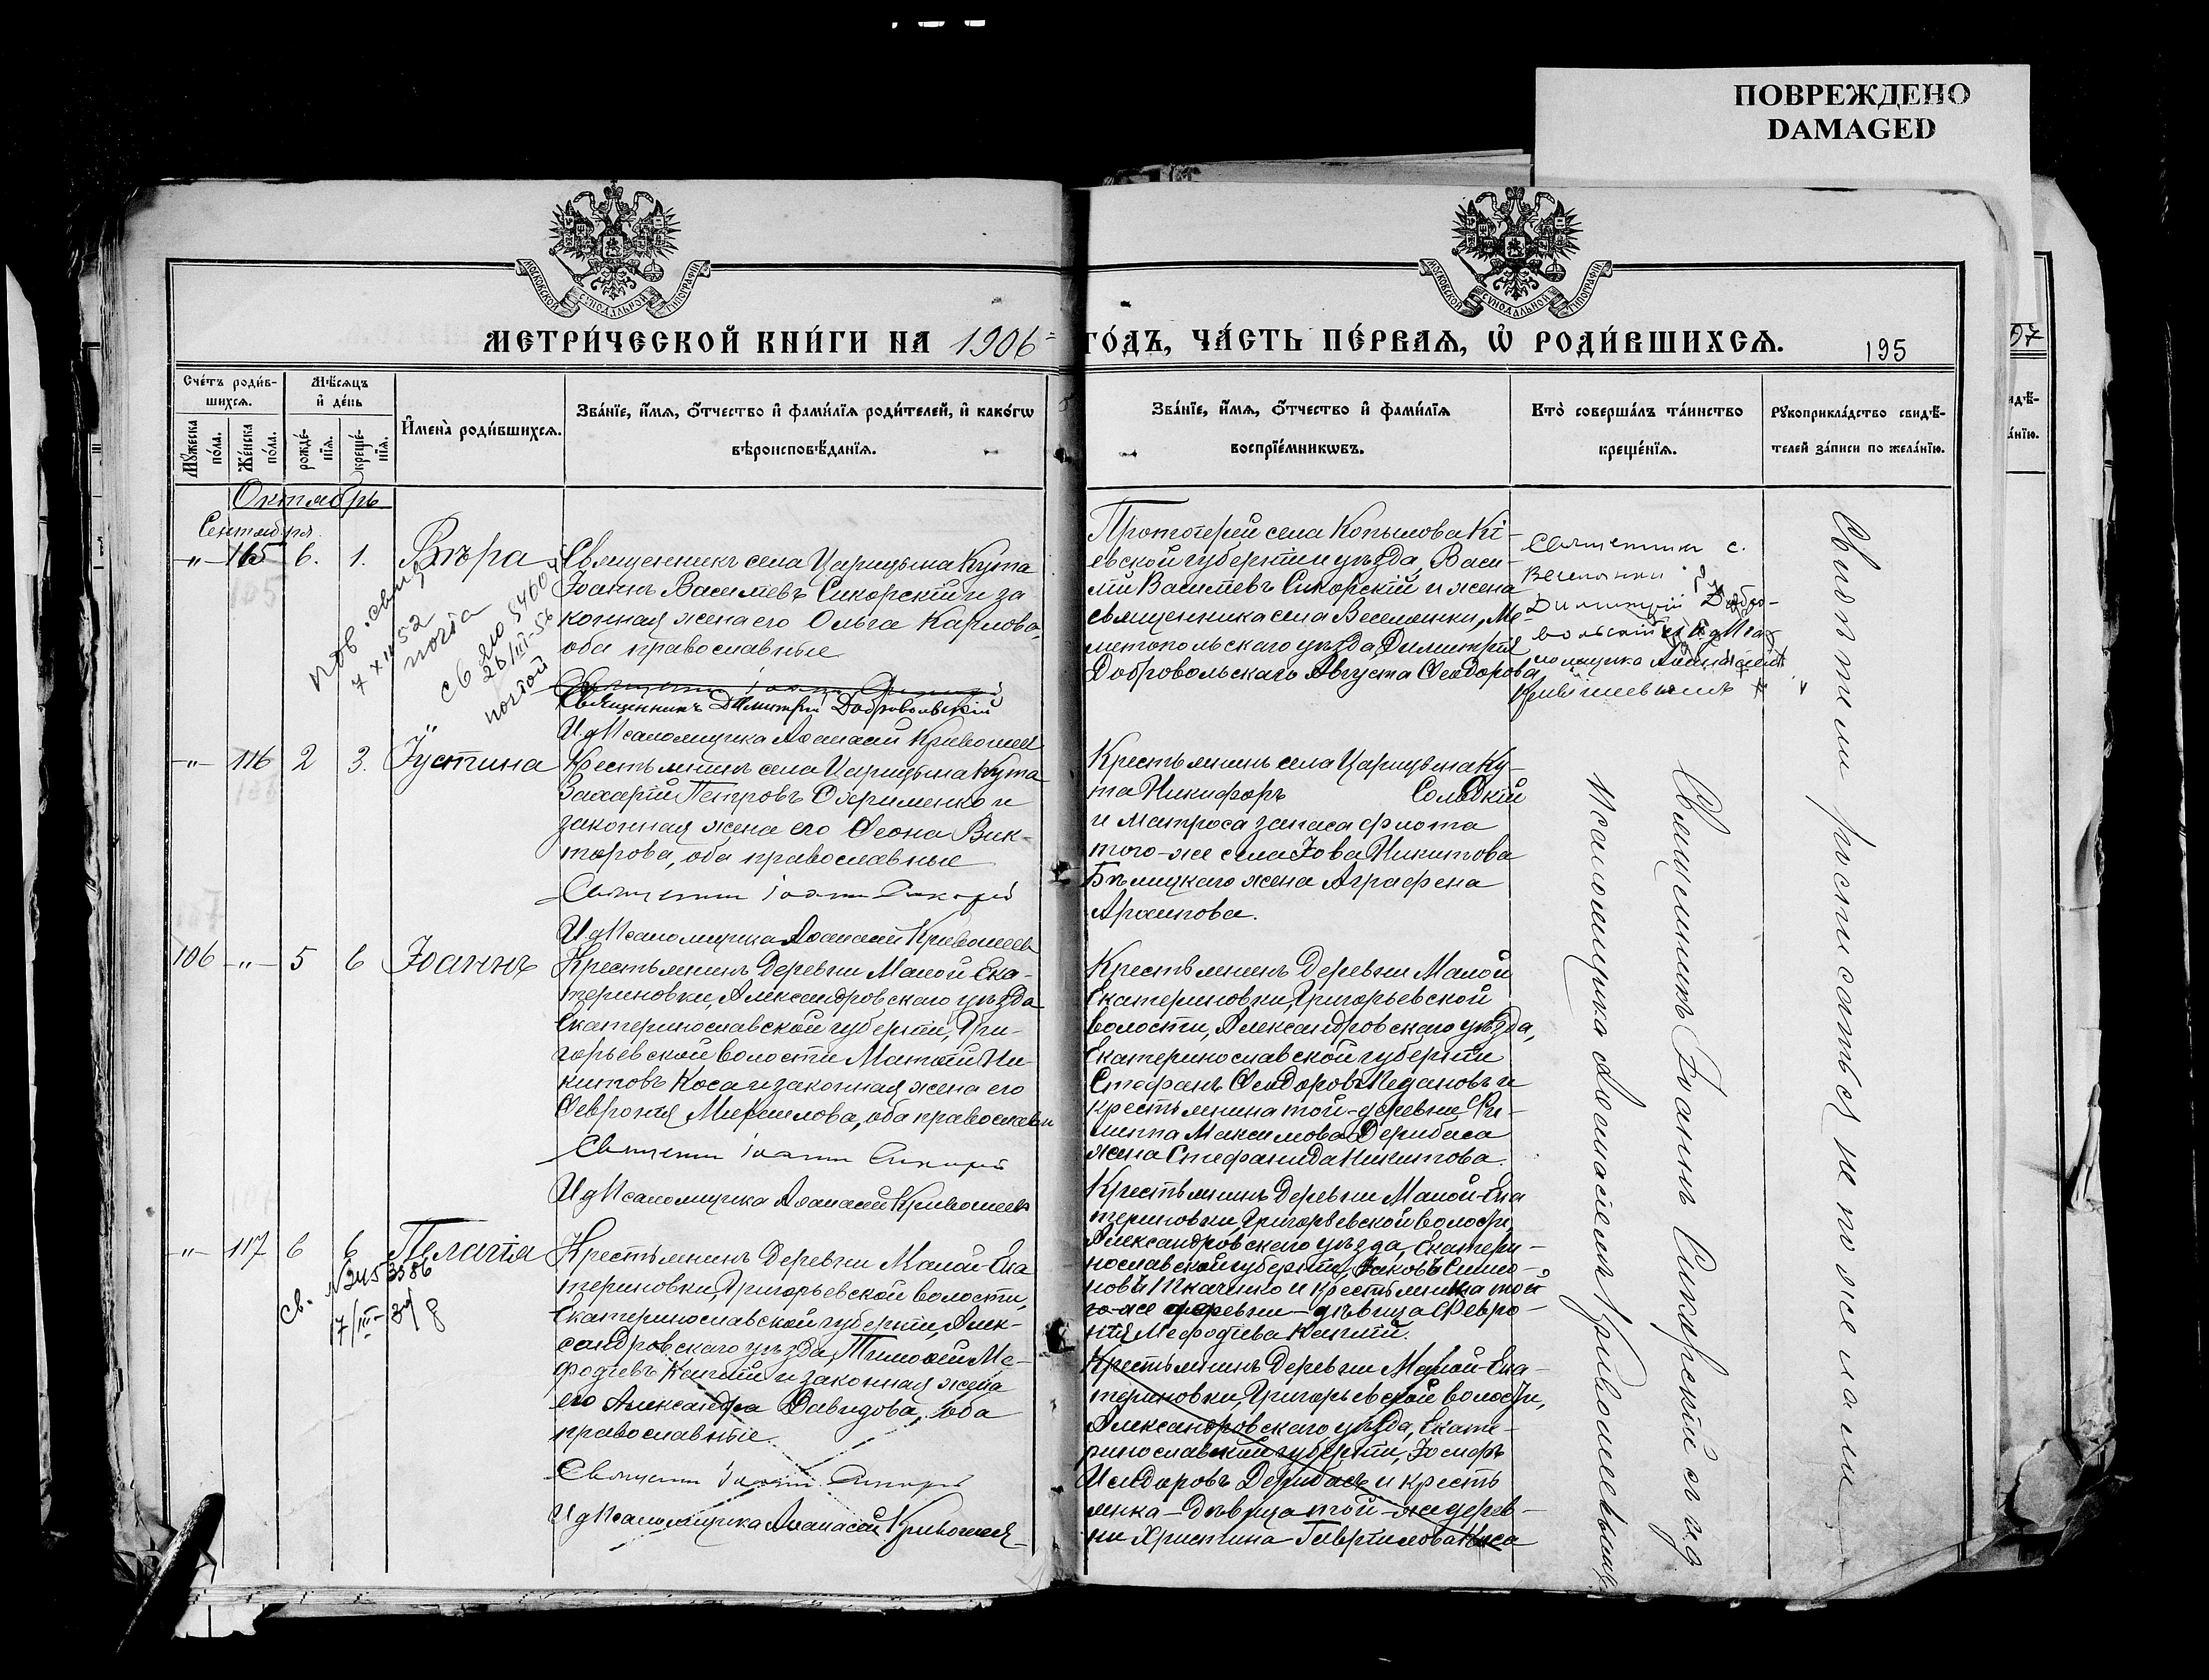 ПОВРЕЖДЕНО
DAMAGED
МОСКОВСКОЙ СѴНОДАЛЬНОЙ ТИПОГРАФІИ
МОСКОВСКОЙ СѴНОДАЛЬНОЙ ТИПОГРАФІИ
МЕТРИ́ЧЕСКОЙ КНИ́ГИ НА 1906
ГО́ДЪ, ЧА́СТЬ ПЕ́РВАѦ, Ѡ҆ РОДИ́ВШИХСѦ.
195
97
Сче́тъ роди́в-
шихсѧ.
Мꙋ́жеска
по́ла.
Же́нска
по́ла.
Мѣ́сѧцъ
и҆ де́нь
рожде́-
нїѧ.
креще́-
нїѧ.
И҆мена̀ роди́вшихсѧ.
Зва́нїе, и҆́мѧ, ѻ҆́тчество и҆ фами́лїѧ роди́телей, и҆ како́гѡ
вѣроисповѣ́данїѧ.
Зва́нїе, и҆́мѧ, ѻ҆́тчество и҆ фами́лїѧ
воспрїе́мникѡвъ.
Кто̀ соверша́лъ та́инство
креще́нїѧ.
Рꙋкоприкла́дство свидѣ́-
телей за́писи по жела́нїю.
Октябрь
Сентября
-"- 165 6. 1. Вѣра
Священникъ села Царицына Кута
Іоаннъ Васильевъ Сикорскій и за
конная жена его Ольга Карлова,
оба православные
Священникъ Димитрій Добровольскій
И. д. Псаломщика Аѳанасій Кривошеев
Протоіерей села Копылова Кі-
евской губерніи уѣзда, Васи-
лій Васильевъ Сикорскій и жена
священника села Веселянки, Ме-
литопольскаго уѣзда Димитрія
Добровольскаго Августа Ѳеодорова
Священник с.
Веселянки
Димитрій Добро-
вольскій
Кривошеевымъ
7 X 52
почта
26/III-56
почтой
-"- 116 2 3. Іустина
Крестьянинъ села Царицына Кута
Захарій Петровъ Охрименко и
законная жена его Ѳеона Вик-
торова, оба православные
Священник Іоанн Сикорскій
И. д. Псаломщика Аѳанасій Кривошеев
Крестьянинъ села Царицына Ку-
та Никифоръ Солодкій
и матроса запаса флота
того-же села Іова Никитова
Бѣлицкаго жена Аграфена
Архипова.
106 -"- 5 6 Іоаннъ
Крестьянинъ деревни Малой Ека-
териновки, Александровскаго уѣзда
Екатеринославской губерніи, Гри-
горьевской волости Матѳій Ни-
китовъ Коса и законная жена его
Феврон­ія Михаилова, оба православн
Священник Іоанн Сикорскій
И д Псаломщика Аѳанасій Кривошеев
Крестьянинъ деревни Малой
Екатериновки, Григорьевской
волости, Александровскаго уѣзда,
Екатеринославской губерніи
Стефанъ Ѳеодоровъ и
крестьянина той-деревни Фи-
липпа Максимова Дерибаса
жена Стефанида Никитова.
-"- 117 6 6 Пелагія
св. №2453586
17/III-
Крестьянинъ деревни Малой-Ека
териновки, Григорьевской волости,
Екатеринославской губерніи, Алек-
сандровскаго уѣзда, Тимоѳей Ме-
фодіевъ Каплій и законная жена
его Александра Давидова, оба
православные.
Священник Іоанн Сикорскій
И д Псаломщика Аѳанасій Кривошеев
Крестьянинъ деревни Малой-Ека
териновки, Григорьевской волости,
Александровскаго уѣзда, Екатери-
нославской губерніи, Яковъ Симо-
новъ Ткаченко и крестьянина той
то-же деревни-дѣвица Февро-
нія Мефодіева Каплій.
Крестьянинъ деревни Малой-Ека-
териновки, Григорьевской волости,
Александровскаго уѣзда, Екате-
ринославской губерніи, Іосифъ
Исидоровъ Дерибасъ и кресть
янка-дѣвица той-же дерев-
ни Христина Гавріилова Коса
Священникъ Іоаннъ Сикорскій съ и. д.
Псаломщика Аѳанасіемъ Кривошеевымъ
Свидѣтели росписаться не пожелали